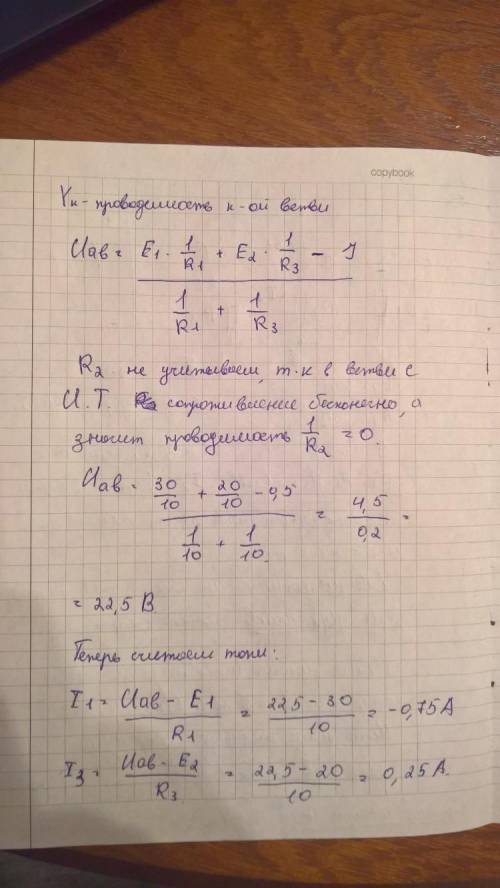 copybook
Yк - проводимость к-ой ветви
Uав = E1 · 1/R1 + E2 · 1/R3 - J
1/R1 + 1/R3
R2 не учитываем, т.к в ветви с
И.Т. сопротивление бесконечно, а
значит проводимость 1/R2 = 0.
Uав = 30/10 + 20/10 - 0,5 = 4,5/0,2 =
1/10 + 1/10
= 22,5 В
Теперь считаем токи:
I1 = Uав - E1/R1 = 22,5 - 30/10 = -0,75А
I3 = Uав - E2/R3 = 22,5 - 20/10 = 0,25А.